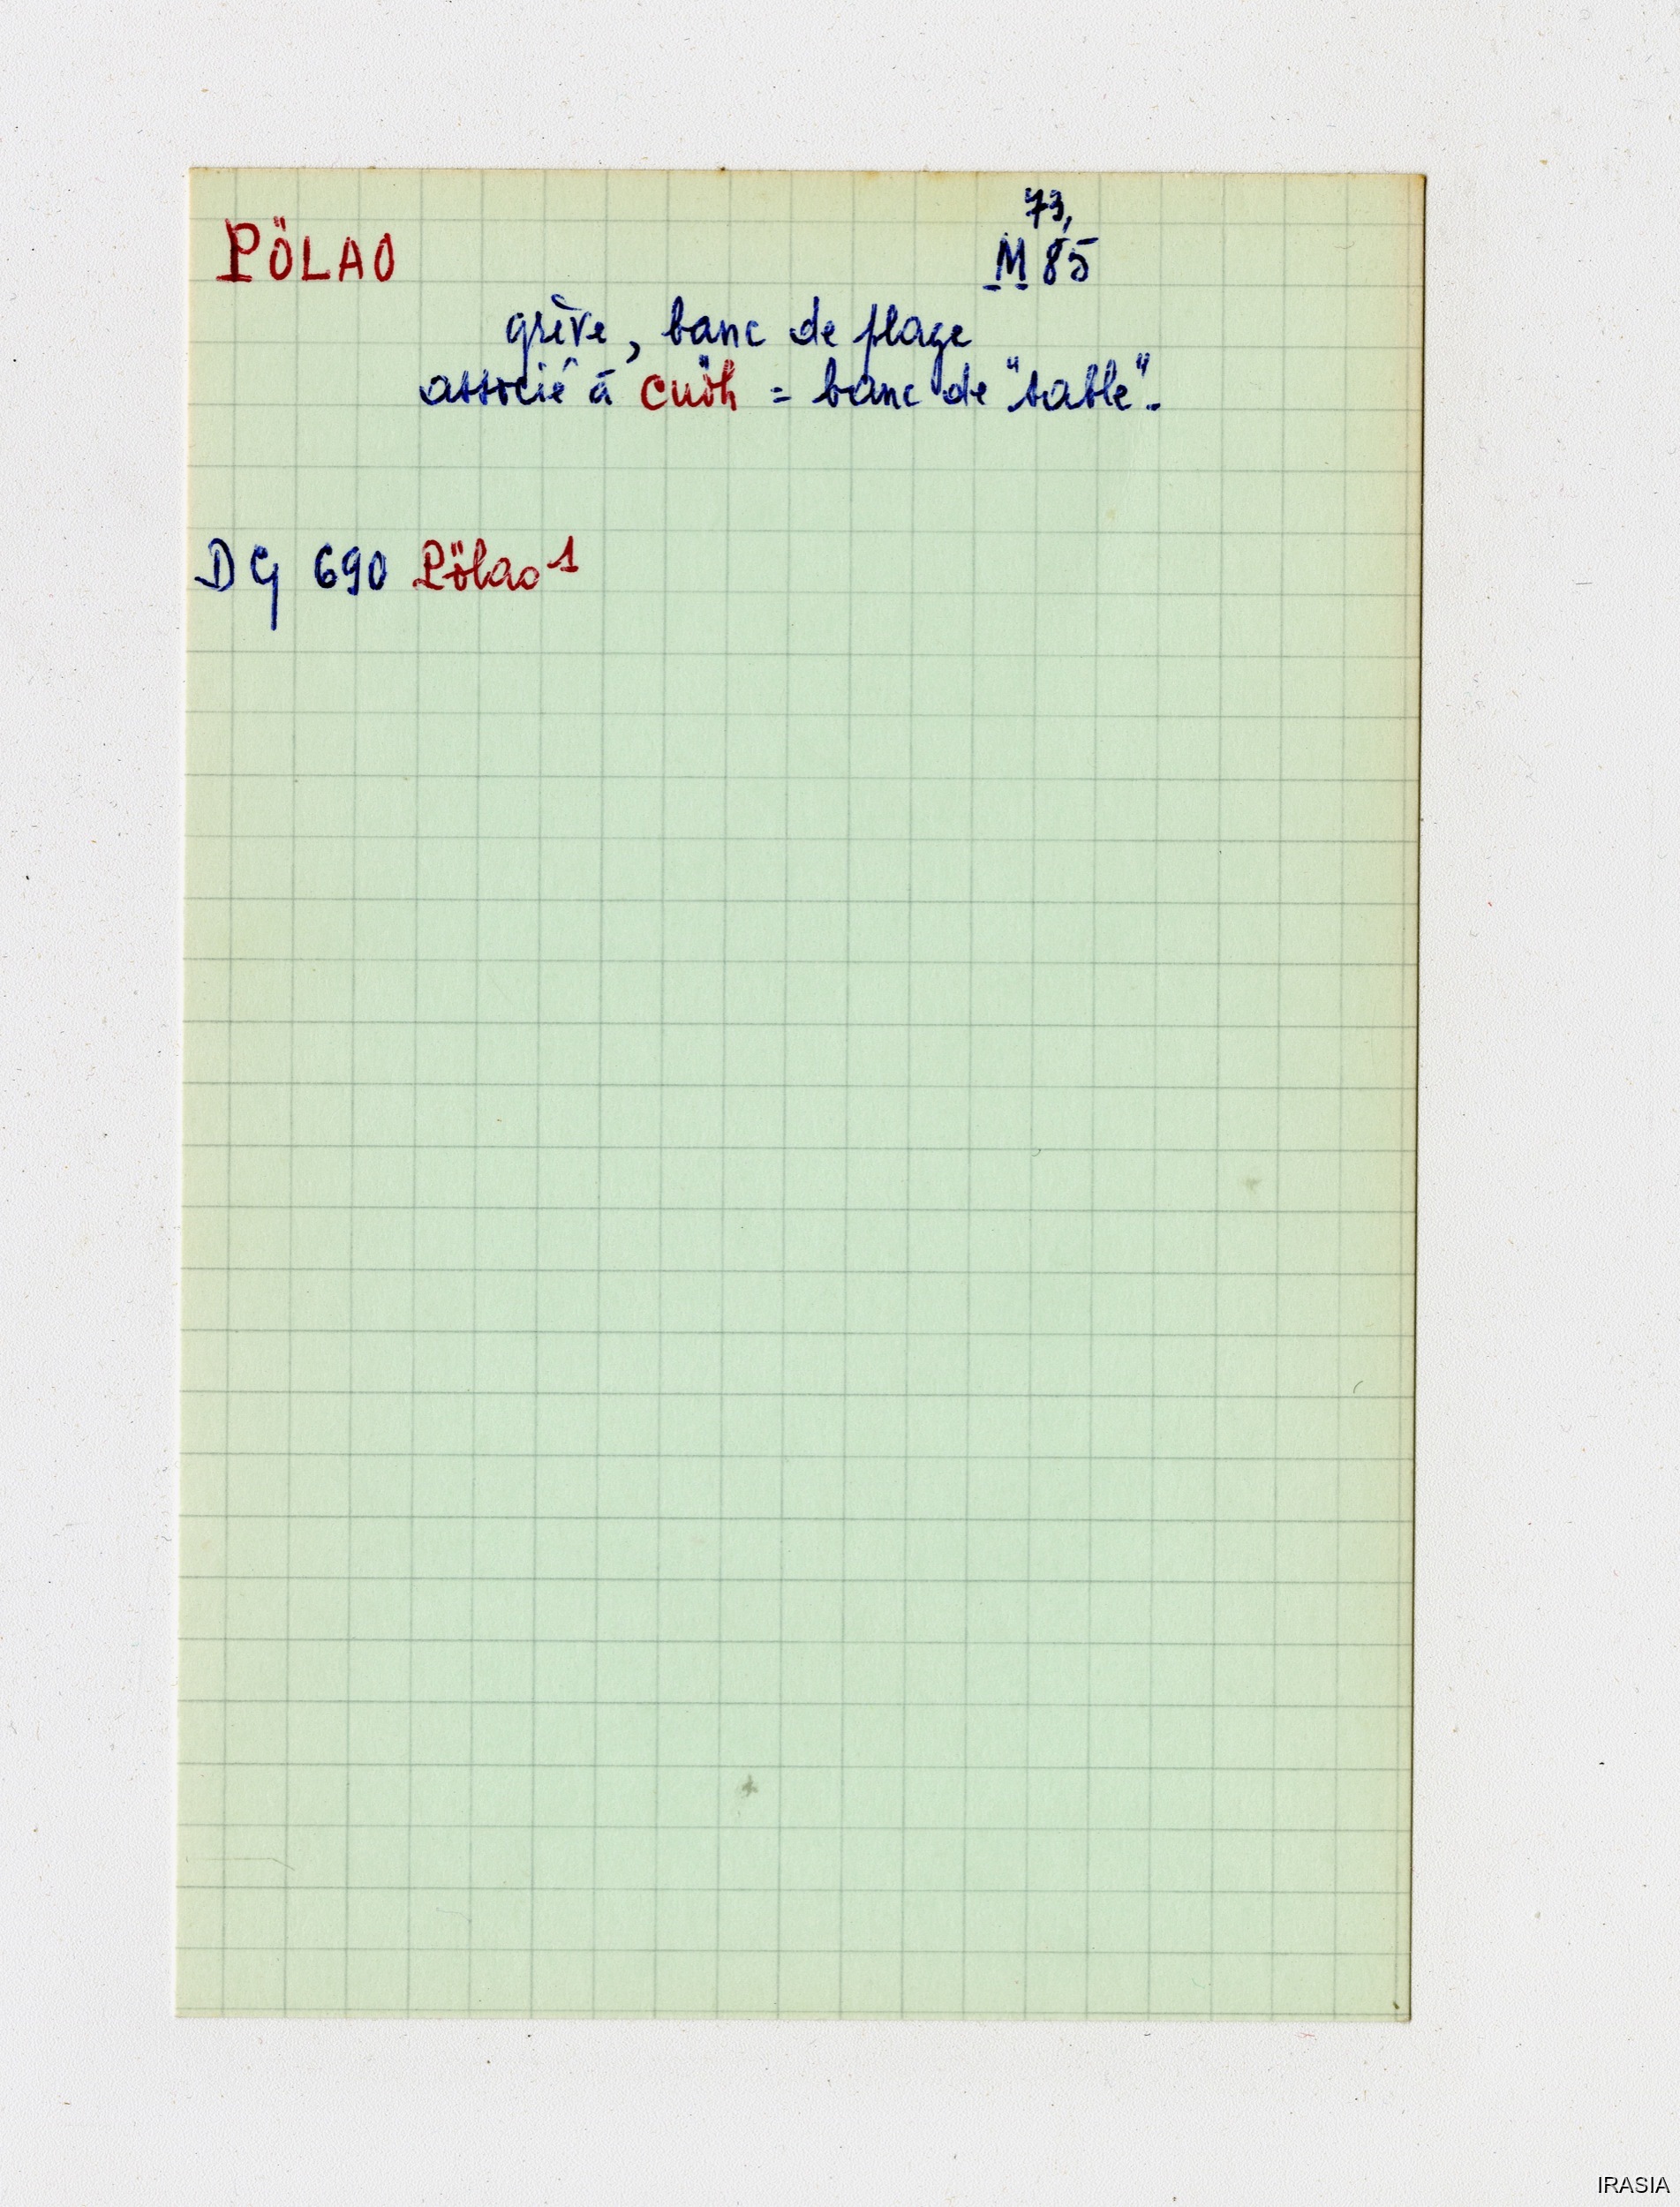 73,
PÖLAO M 85
grève, banc de plage
associé à cuöh = banc de "sable".
DG 690 Pölao 1
IRASIA